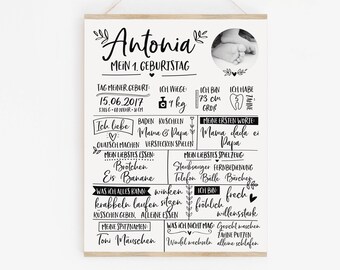 Antonia
MEIN 1. GEBURTSTAG
TAG MEINER GEBURT:
15.06.2017
ICH WIEGE:
9 kg
ICH BIN
73 cm
GROß
ICH HABE
ZÄHNE
Ich liebe
BADEN KUSCHELN
Mama & Papa
QUATSCH MACHEN VERSTECKEN SPIELEN
MEINE ERSTEN WORTE:
Mama, dada
MEIN LIEBSTES ESSEN:
Brötchen
Eis Banane
MEIN LIEBSTES SPIELZEUG:
Staubsauger FERNBEDIENUNG
Telefon Bälle Bärchen
WAS ICH ALLES KANN:
winken
krabbeln laufen sitzen
KÜSSCHEN GEBEN, ALLEINE ESSEN
ICH BIN:
frech
fröhlich
willensstark
MEINE SPITZNAMEN:
Toni Mäuschen
WAS ICH NICHT MAG:
Windel wechseln
GESICHT WASCHEN
ZÄHNE PUTZEN
alleine schlafen